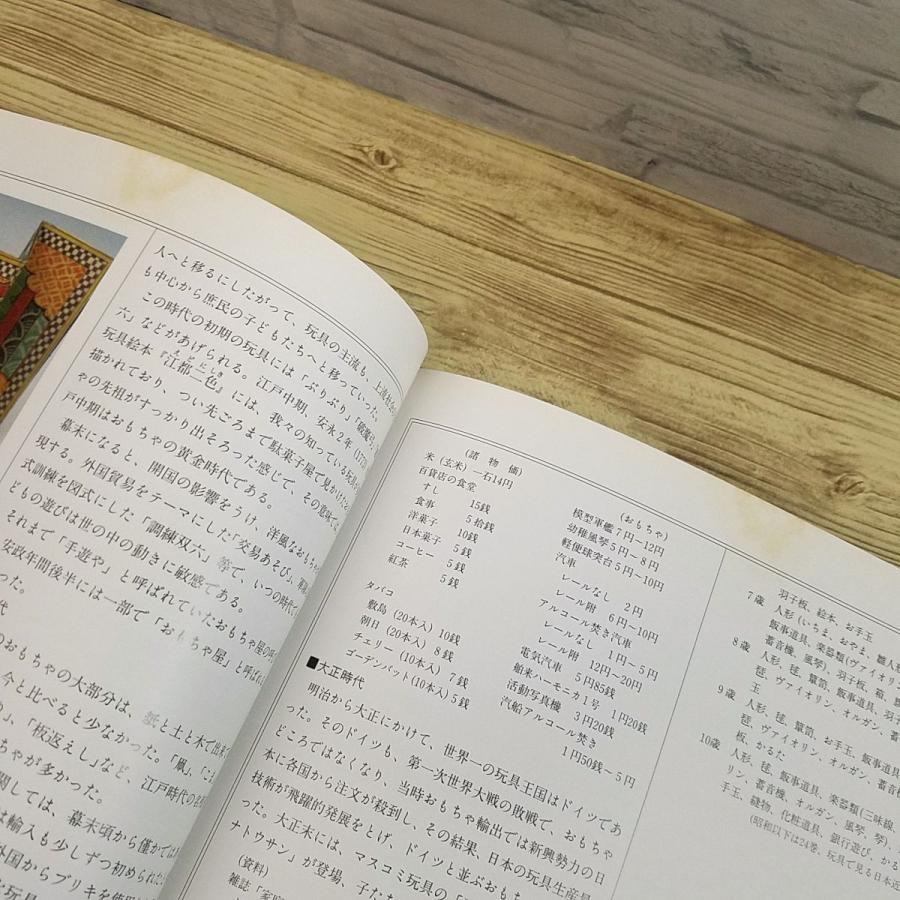 人へと移るにしたがって、玩具の主流も、上流社会
も中心から庶民の子どもたちへと移っていった。
この時代の初期の玩具には「ぶりぶり」「破魔弓」
六」などがあげられる。江戸中期、安永2年
玩具絵本『江都二色』には、我々の知っている玩具が
描かれており、つい先ごろまで駄菓子屋で見かけた
ゃの先祖がすっかり出そろった感じで、その意味で
戸中期はおもちゃの黄金時代である。
幕末になると、開国の影響をうけ、洋風なおもちゃ
現する。外国貿易をテーマにした「交易あそび」、
式訓練を図式にした「調練双六」等で、いつの時代
どもの遊びは世の中の動きに敏感である。
それまで「手遊や」と呼ばれていたおもちゃ屋の
安政年間後半には一部で「おもちゃ屋」と呼ば
った。
代
のおもちゃの大部分は、紙と土と木で出来
今と比べると少なかった。「凧」、「こま
」、「板返えし」など、江戸時代の
ちゃが多かった。
関しては、幕末頃から僅かでは
は輸入も少しずつ初められた
外国からブリキを使
玩具
(諸物価)
米(玄米)一石14円
百貨店の食堂
すし 15銭
食事 5拾銭
洋菓子 10銭
日本菓子 5銭
コーヒー 5銭
紅茶 5銭
タバコ
敷島(20本入)10銭
朝日(20本入)8銭
チェリー(10本入)7銭
ゴーデンバット(10本入)5銭
(おもちゃ)
模型軍艦7円〜12円
幼稚風琴5円〜8円
軽便球突台5円〜10円
汽車
レールなし 2円
レール附 6円〜10円
アルコール焚き汽車
レールなし 1円〜5円
レール附 12円〜20円
電気汽車 5円85銭
舶来ハーモニカ1号 1円20銭
活動写真機 3円20銭
汽船アルコール焚き
1円50銭〜5円
■大正時代
明治から大正にかけて、世界一の玩具王国はドイツであ
った。そのドイツも、第一次世界大戦の敗戦で、おもちゃ
どころではなくなり、当時おもちゃ輸出では新興勢力の日
本に各国から注文が殺到し、その結果、日本の玩具生産
技術が飛躍的発展をとげ、ドイツと並ぶおもち
った。大正末には、マスコミ玩具の「
ナトウサン」が登場、子た
(資料)
雑誌「家庭
羽子板、絵本、お手玉
7歳 人形(いちま、おやま、雛人形
飯事道具、楽器類(ヴァイオリン
蓄音機、風琴)、羽子板、箱、
8歳 人形、毬、簞笥、飯事道具、羽子
琶、ヴァイオリン、オルガン、蓄
玉
9歳 人形、毬、簞笥、お手玉、飯事道
琶、ヴァイオリン、オルガン、蓄音
板、かるた
10歳 人形、毬、飯事道具、楽器類(三味線、
リン、蓄音機、オルガン、風琴、琴)、
手玉、縫物、化粧道具、銀行遊び、かる
(昭和以下は24巻、玩具で見る日本近